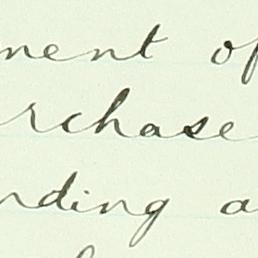 ment of
rchase
nding a